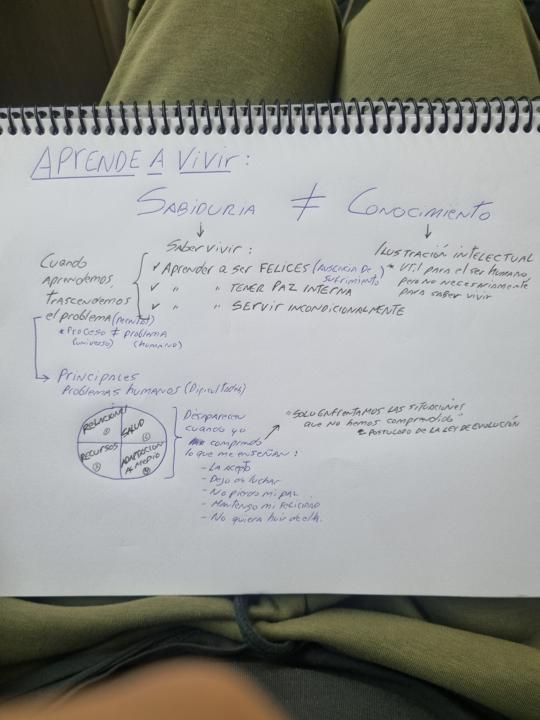 APRENDE A VIVIR:
SABIDURIA ≠ CONOCIMIENTO
↓ ↓
Saber vivir:
✓ Aprender a ser FELICES (AUSENCIA DE
sufrimiento)
✓ " " TENER PAZ INTERNA
✓ " " SERVIR INCONDICIONALMENTE
Cuando
Aprendemos,
trascendemos
el problema
* Proceso ≠ problema
(universo) (humano)
ILUSTRACIÓN INTELECTUAL
* UTIL para el ser humano,
pero no necesariamente
para saber vivir
Principales
Problemas humanos (Dificultades)
RELACIONES
①
SALUD
②
RECURSOS
③
ADAPTACION
AL MEDIO
④
Desaparecen
cuando yo
comprendo
lo que me enseñan:
- La acepto
- Dejo de luchar
- No pierdo mi paz
- Mantengo mi felicidad
- No quiera huir de ella.
"SOLO ENFRENTAMOS LAS SITUACIONES
que no hemos comprendido"
* POSTULADO DE LA LEY DE EVOLUCIÓN